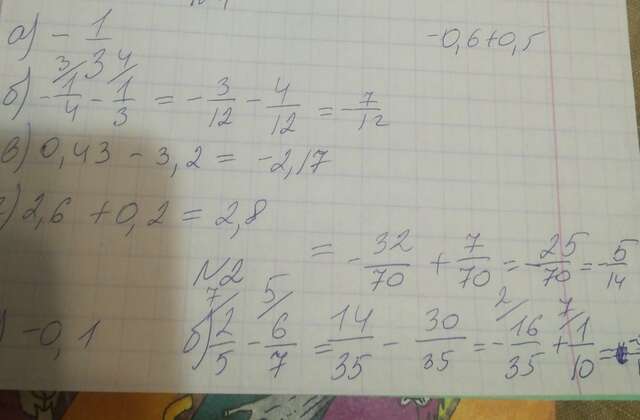 а) - 1/3
-0,6+0,5
б) - 1/4 - 1/3 = - 3/12 - 4/12 = - 7/12
в) 0,43 - 3,2 = -2,17
) 2,6 + 0,2 = 2,8
= - 32/70 + 7/70 = - 25/70 = - 5/14
№2
) -0,1
б) 2/5 - 6/7 = 14/35 - 30/35 = - 16/35 + 1/10 =